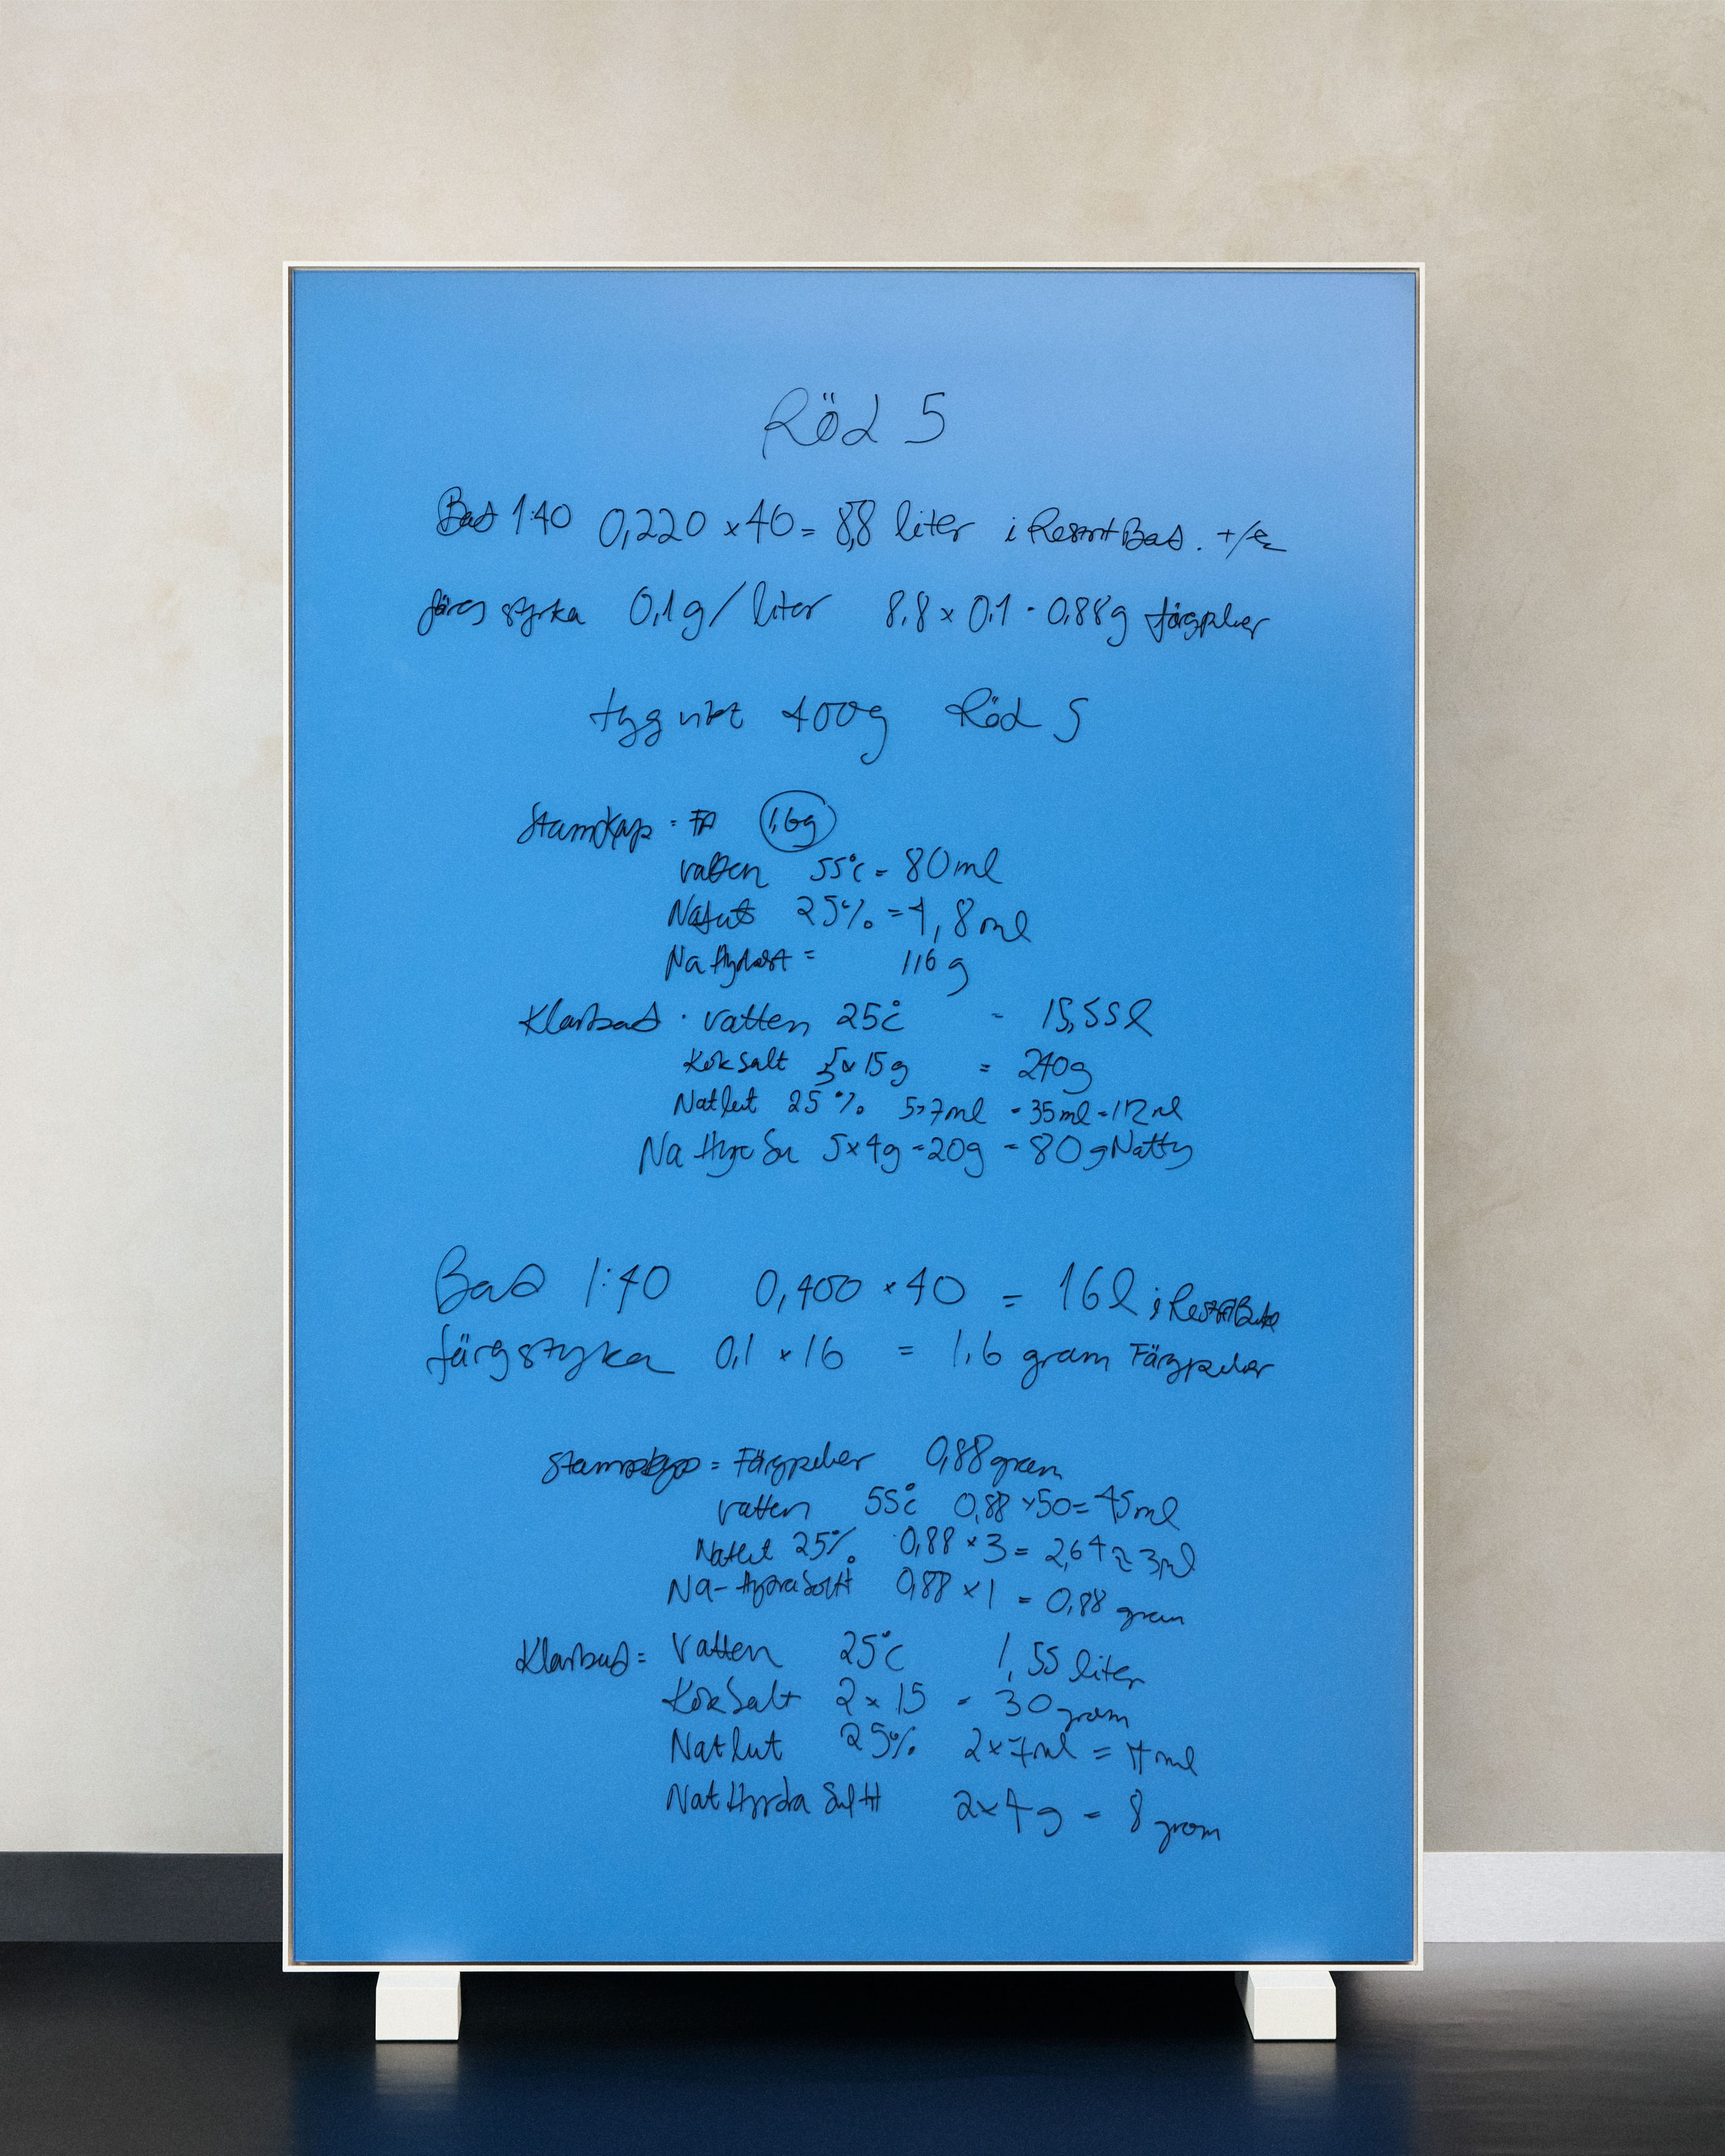 Röd 5
Bad 1:40 0,220 x 40 = 8,8 liter i Restrt Bad. +/-
färg styrka 0,1g/liter 8.8 x 0,1 - 0,88g färgpulver
tyg vikt 400g Röd 5
Stamkyp = FP 1,6g
vatten 55°C = 80 ml
Natlut 25% = 4,8 ml
Na Hydrost = 1,6 g
Klarbad · vatten 25°C - 15,55 l
Koksalt x 15g = 240g
Natlut 25% 5x7ml = 35ml = 112 ml
Na Hydr Su 5x4g = 20g = 80g
Bad 1:40 0,400 x 40 = 16 l i Restrt Bad
färgstyka 0,1 x 16 = 1,6 gram Färgpulver
Stamkyp = Färgpulver 0,88 gram
vatten 55°C 0,88 x 50 = 45 ml
Natlut 25% 0,88 x 3 = 2,64 ≈ 3 ml
Na- 0,88 x 1 = 0,88 gram
Klarbad = Vatten 25°C 1,55 liter
Koksalt 2 x 15 - 30 gram
Natlut 25% 2x7ml = 14 ml
Nat Hydra Sulfit 2x4 g = 8 gram